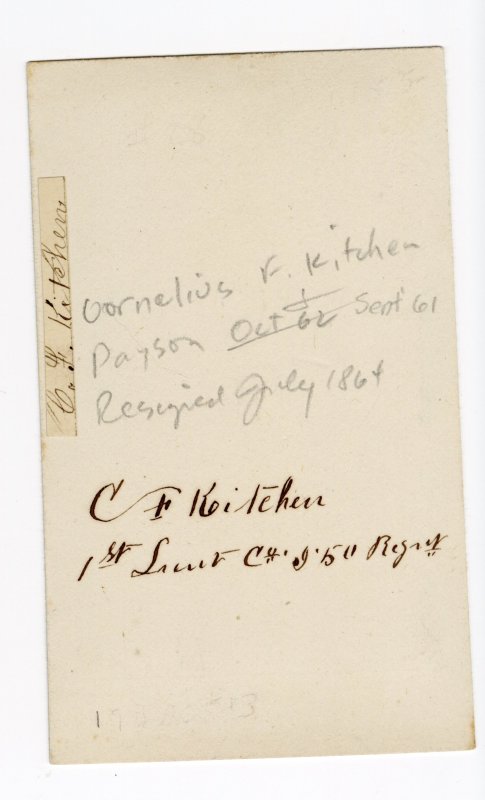 C. F. Kitchen
Cornelius F. Kitchen
Payson Oct 62 Sept 61
Resigned July 1864
C F Kitchen
1st Lieut Co. I. 50 Regmt